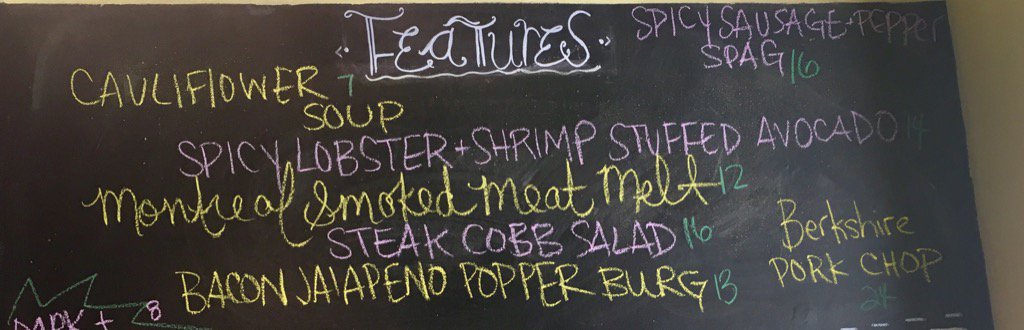 FEATURES
SPICY SAUSAGE + PEPPER
SPAG 16
CAULIFLOWER 7
SOUP
SPICY LOBSTER + SHRIMP STUFFED AVOCADO 14
Montreal Smoked Meat Melt 12
STEAK COBB SALAD 16
Berkshire
PORK CHOP
24
BACON JALAPENO POPPER BURG 13
8